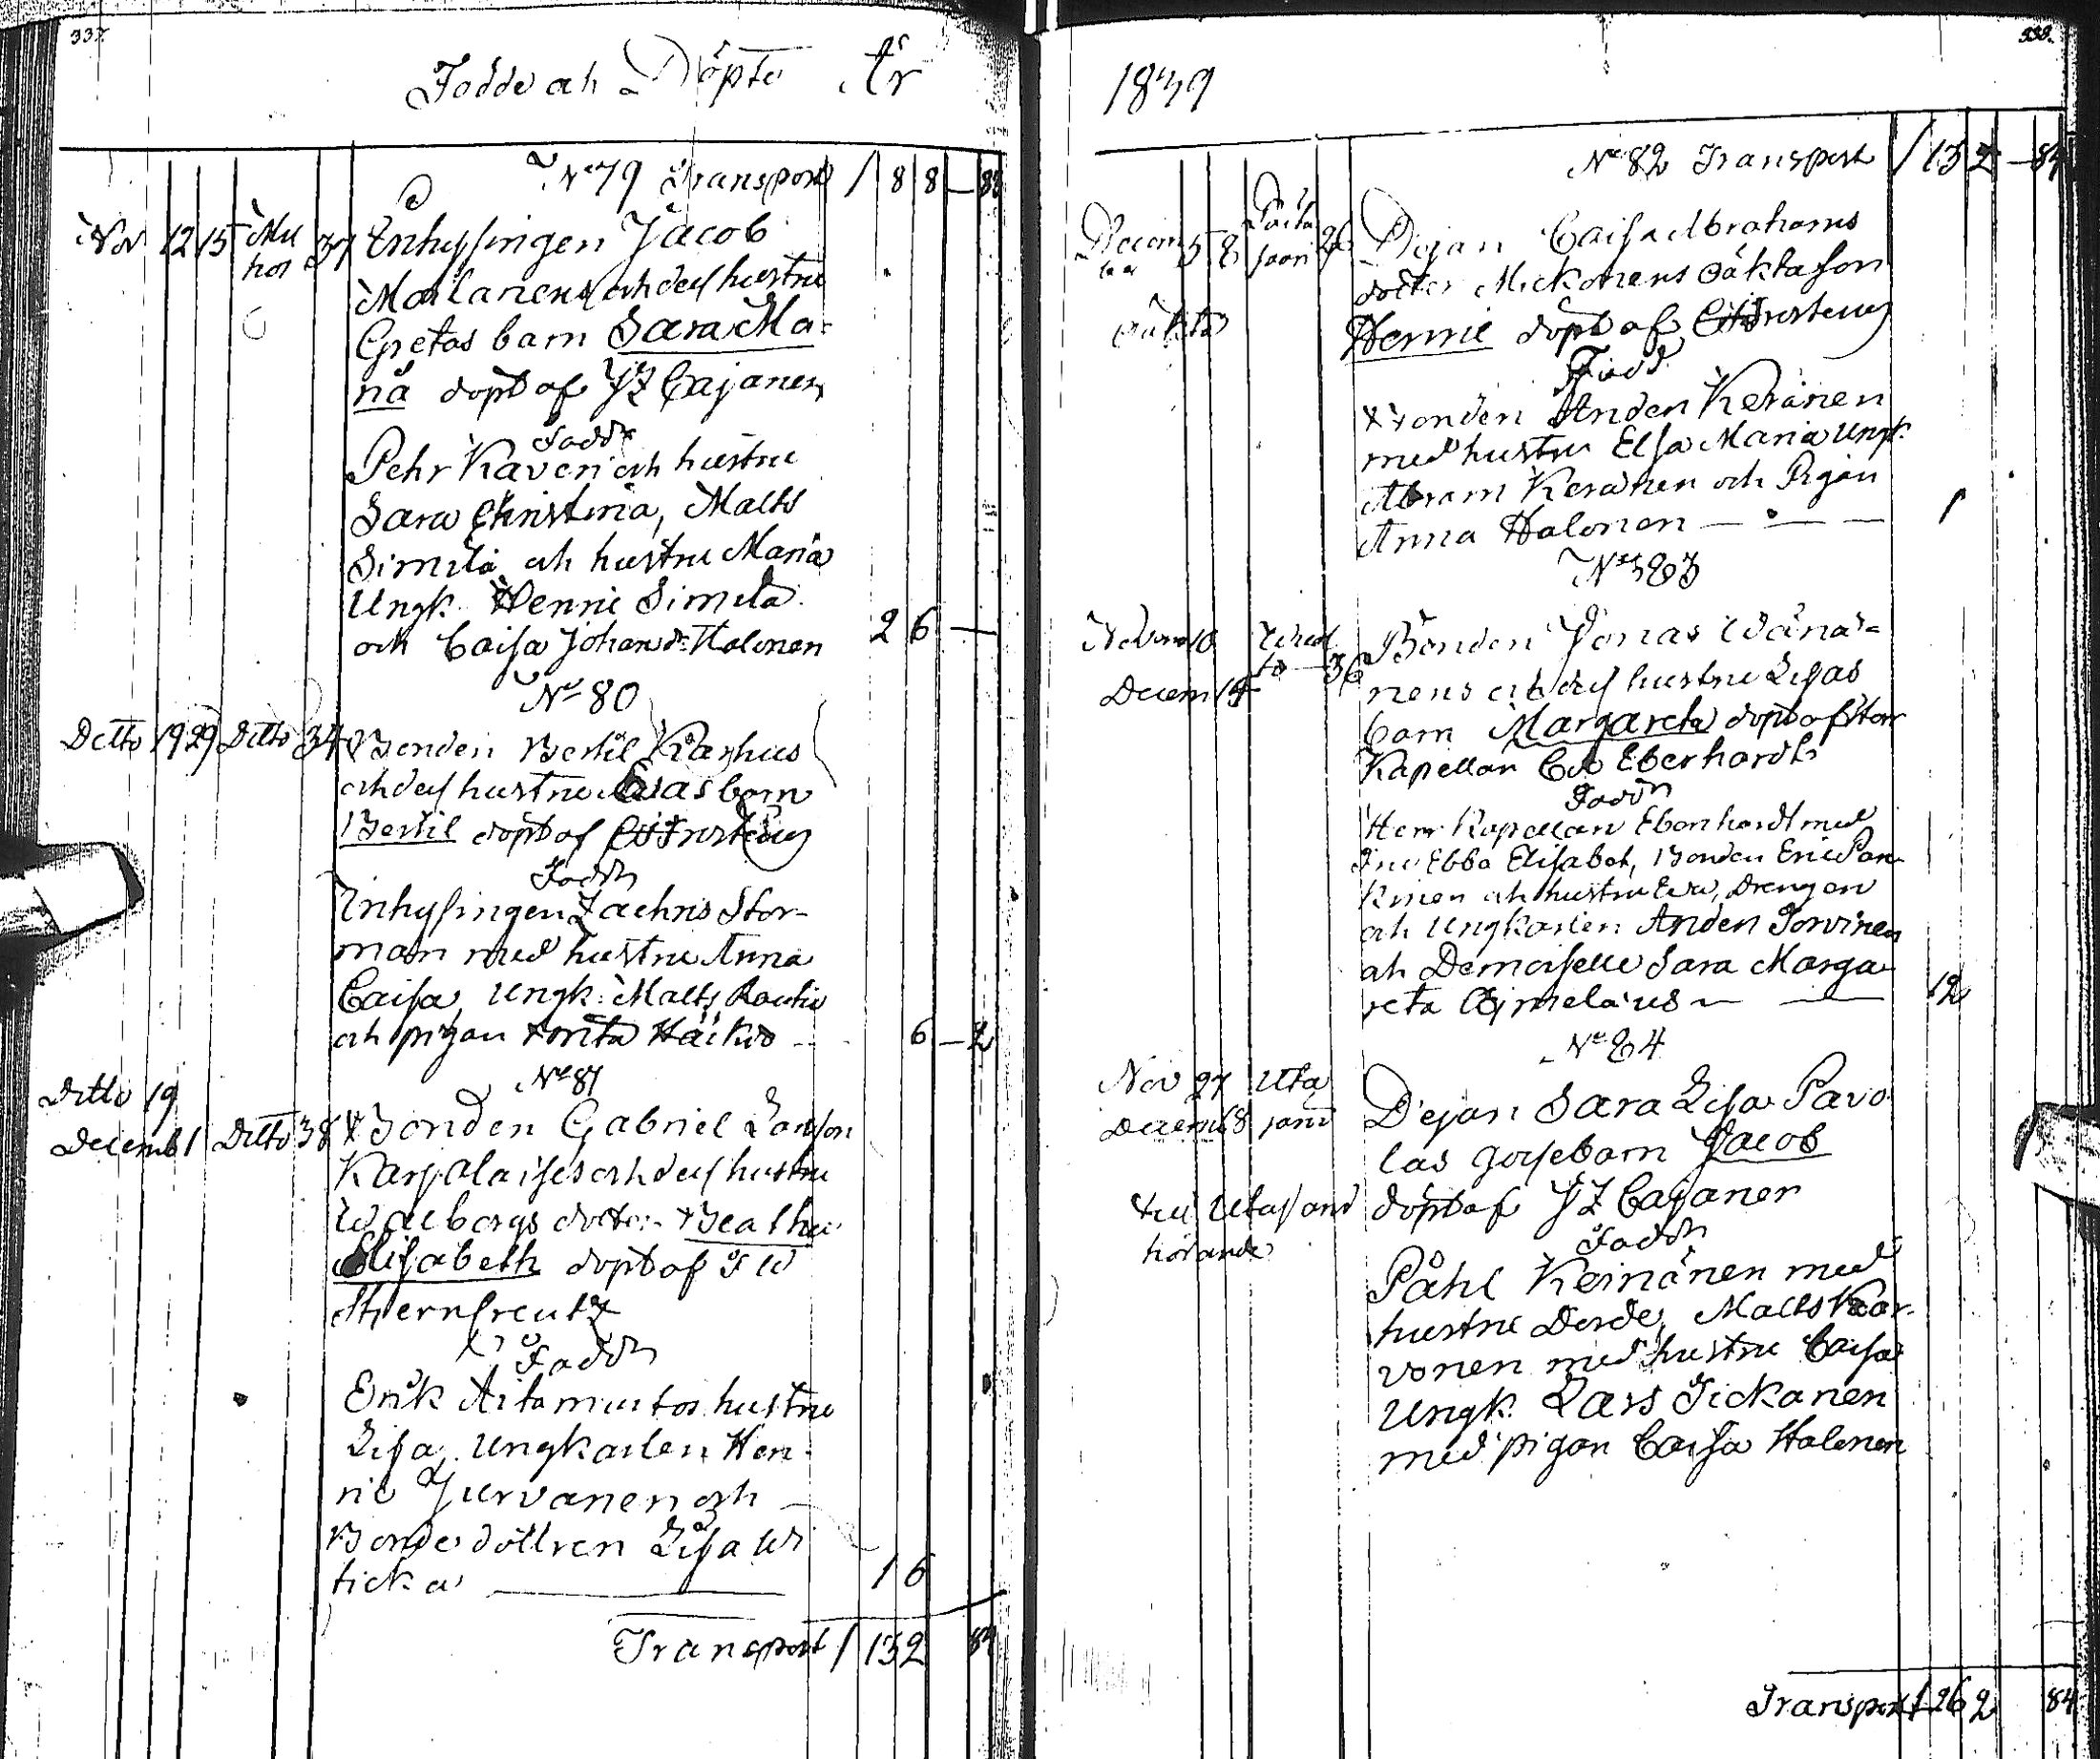 337.
Födde och Döpte År
N° 79 Transport 1 8 8 – 82
Nov 12 15 Mu 37 Inhysingen Jacob
hos
Mailanens och dess hustru
Gretas barn Sara Ma-
ria döpt af J Z Cajanen
Fadd
Pehr Kaven och hustru
Sara Christina, Matts
Simila och hustru Maria
Ungk. Henric Simila
och Caisa Johansdr Halonen 2 6 —
N° 80
Ditto 19 29 Ditto 34 Bonden Bertil Karhus
och dess hustru Evas barn
Bertil döpt af
Fadd
Inhysingen Zachris Stor-
man med hustru Anna
Caisa, Ungk: Matts Rautio
och pigan Brita Häikiö 6 – 2
N° 81
Ditto 19
Decemb 1 Ditto 38 Bonden Gabriel Larsson
Karjalaises och dess hustru
Walborgs dotter Beatha
Elisabeth döpt af F W
Stjerncreutz
Fadd
Erik Aitamurtos hustru
Lisa, Ungkarlen Hen-
ric Jurvanen och
Bonde dottren Lisa Wi
ticka 1 6
Transport 1 132 84
338.
1839
N° 82 Transport 1 132 – 84
Decem 5 8 26 Pigan Caisa Abrahams
ber
dotter Mickonens oäkta son
oäkta
Henric döpt af
Fadd
Bonden Anders Keränen
med hustru Elsa Maria Ungk.
Abram Keränen och Pigan
Anna Halonen — — — 1
N° 83
Novem 10 36 Bonden Jonas Wänä-
Decem 14 nens och dess hustru Lisas
barn Margareta döpt af Herr
Kapellan C Eberhardt
Fadd
Herr Kapellan Eberhardt med
Fru Ebba Elisabet, Bonden Eric Pan-
kinen och hustru Eva, Drengen
och Ungkarlen Anders Torvinen
och Demoiselle Sara Marga
reta Cajmelæus — — 12
N° 84
Nov 27 Uta
Decemb 8 jarvi Pigan Sara Lisa Pavo
las gosse barn Jacob
till Utajarvi döpt af J Z Cajanen
hörande
Fadd
Påhl Keinänen med
hustru Dorde, Matts Kar-
vonen med hustru Caisa
Ungk. Lars Tickanen
med pigan Caisa Halonen
Transport 1 262 84